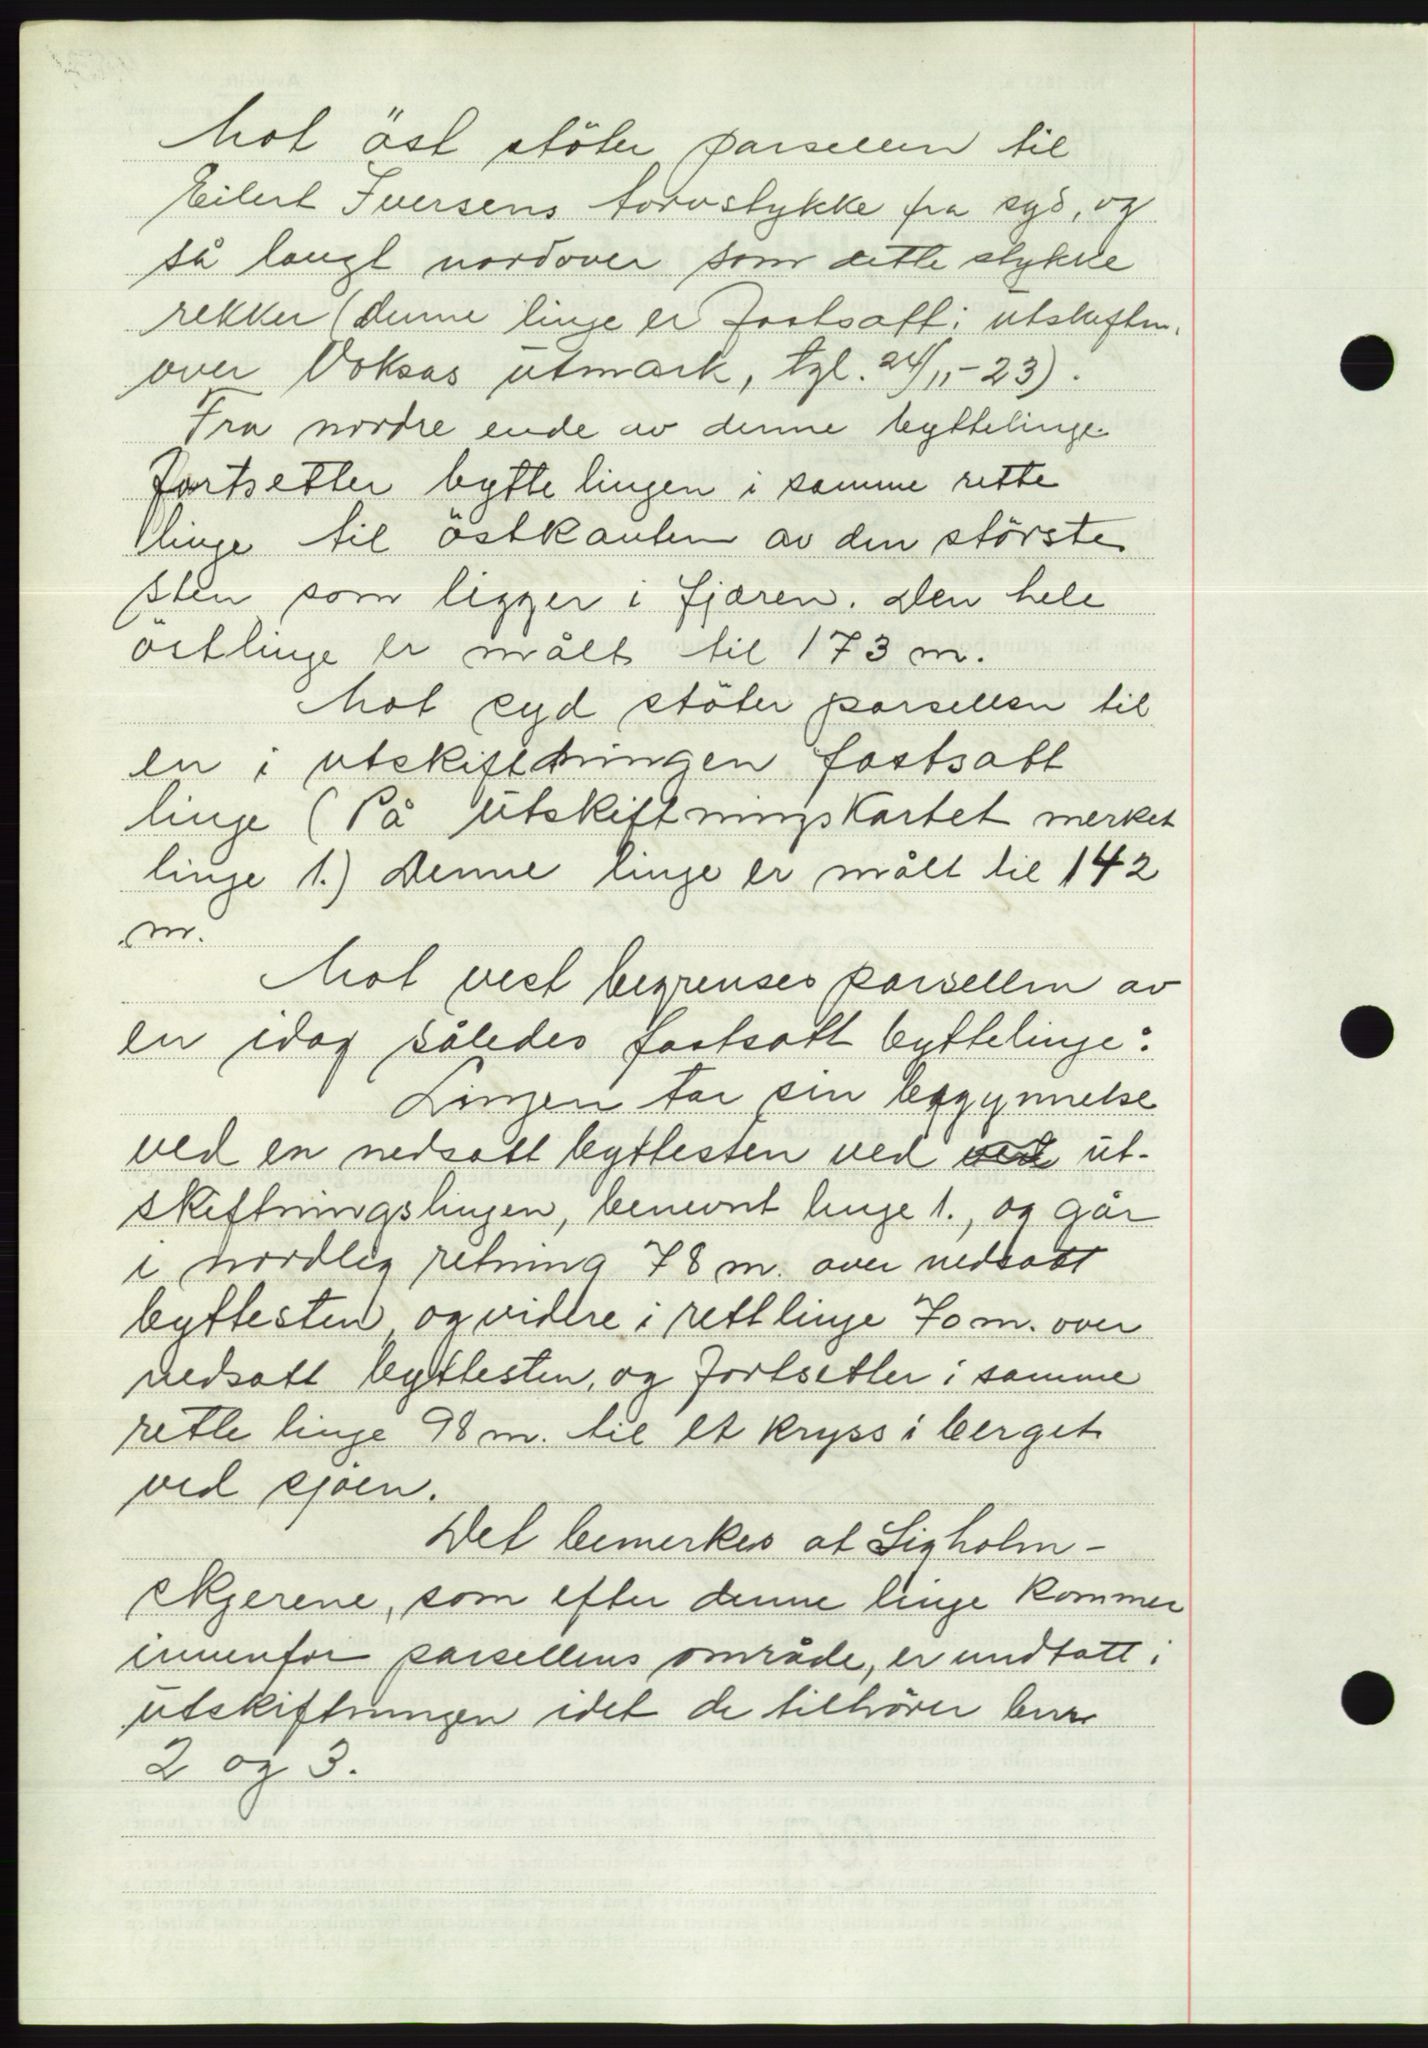 Mot öst stöter parsellen til
Eilert Iversens torvstykke fra syd, og
så langt nordover som dette stykke
rekker (denne linje er fastsatt i utskiftn.
over Voksas utmark, tgl. 24/11-23).
Fra nordre ende av denne byttelinje
fortsetter byttelinjen i samme rette
linje til östkanten av den störste
sten som ligger i fjæren. Den hele
östlinje er målt til 173 m.
Mot syd stöter parsellen til
en i utskiftningen fastsatt
linje (På utskiftningskartet merket
linje 1.) Denne linje er målt til 142
m.
Mot vest begrenses parsellen av
en idag således fastsatt byttelinje:
Linjen tar sin beggynnelse
ved en nedsatt byttesten ved ved ut-
skiftningslinjen, benevnt linje 1., og går
i nordleg retning 78 m. over nedsatt
byttesten, og videre i rett linje 70 m. over
nedsatt byttesten, og fortsetter i samme
rette linje 98 m. til et kryss i berget
ved sjöen.
Det bemerkes at Ligholm-
skjerene, som efter denne linje kommer
innenfor parsellens område, er undtatt i
utskiftningen idet de tilhörer bnr
2 og 3.